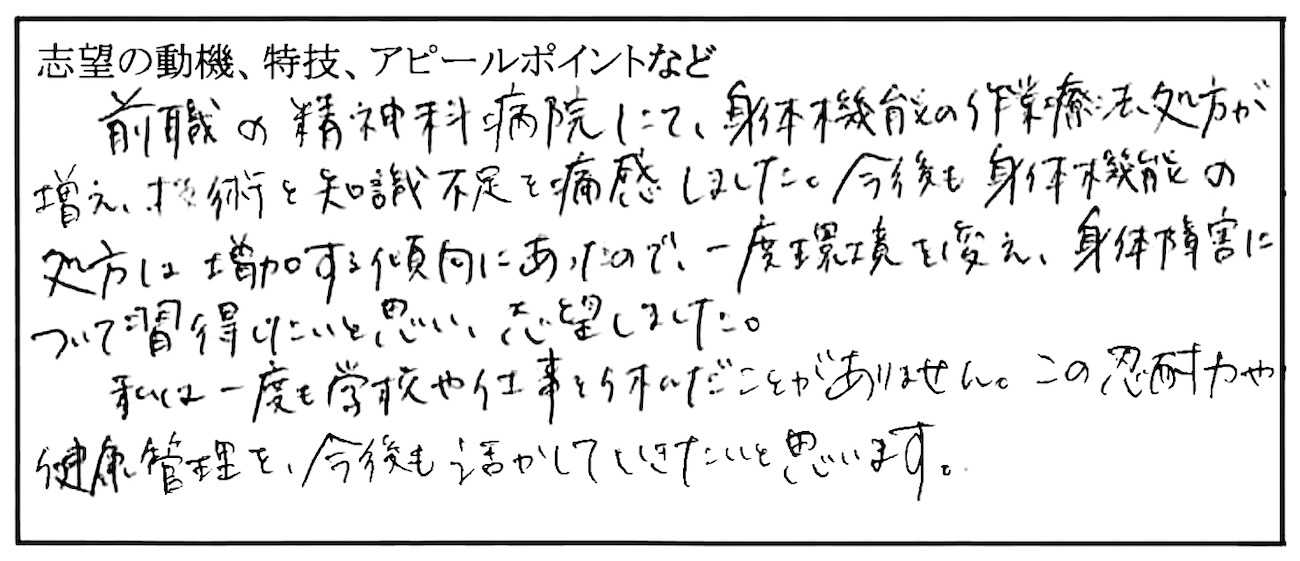 志望の動機、特技、アピールポイントなど
前職の精神科病院にて、身体機能の作業療法処方が
増え、技術と知識不足を痛感しました。今後も身体機能の
処方は増加する傾向にあったので、一度環境を変え、身体障害に
ついて習得したいと思い、志望しました。
私は一度も学校や仕事を休んだことがありません。この忍耐力や
健康管理を、今後も活かしていきたいと思います。